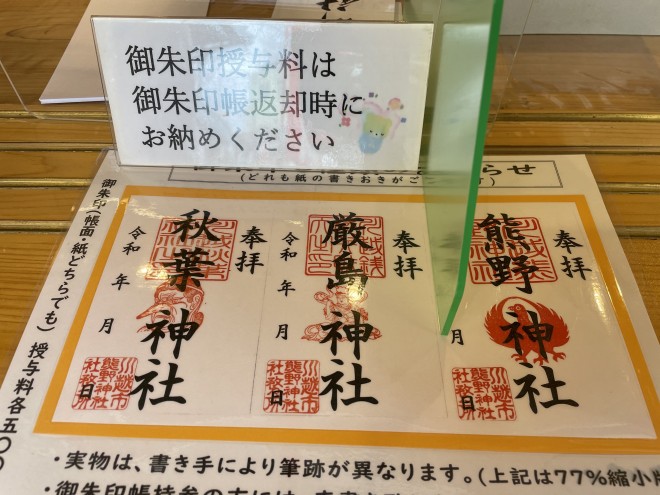 御朱印授与料は
御朱印帳返却時に
お納めください
らせ
(どれも紙の書きおきがご
御朱印(帳面・紙どちらでも) 授与料各五〇〇
奉拝
熊野神社
月
日
川越市
熊野神社
社務所
奉拝
厳島神社
令和 年 月
日
川越市
熊野神社
社務所
奉拝
秋葉神社
令和 年 月
日
川越市
熊野神社
社務所
・実物は、書き手により筆跡が異なります。(上記は77%縮小
・御朱印帳持参の方には、